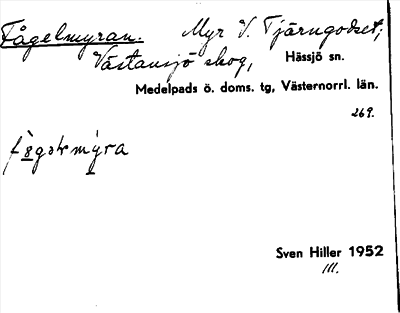 Fågelmyran. Myr V. Tjärngodset,
Västansjö skog, Hässjö sn.
Medelpads ö. doms. tg, Västernorrl. län.
269.
Sven Hiller 1952
III.